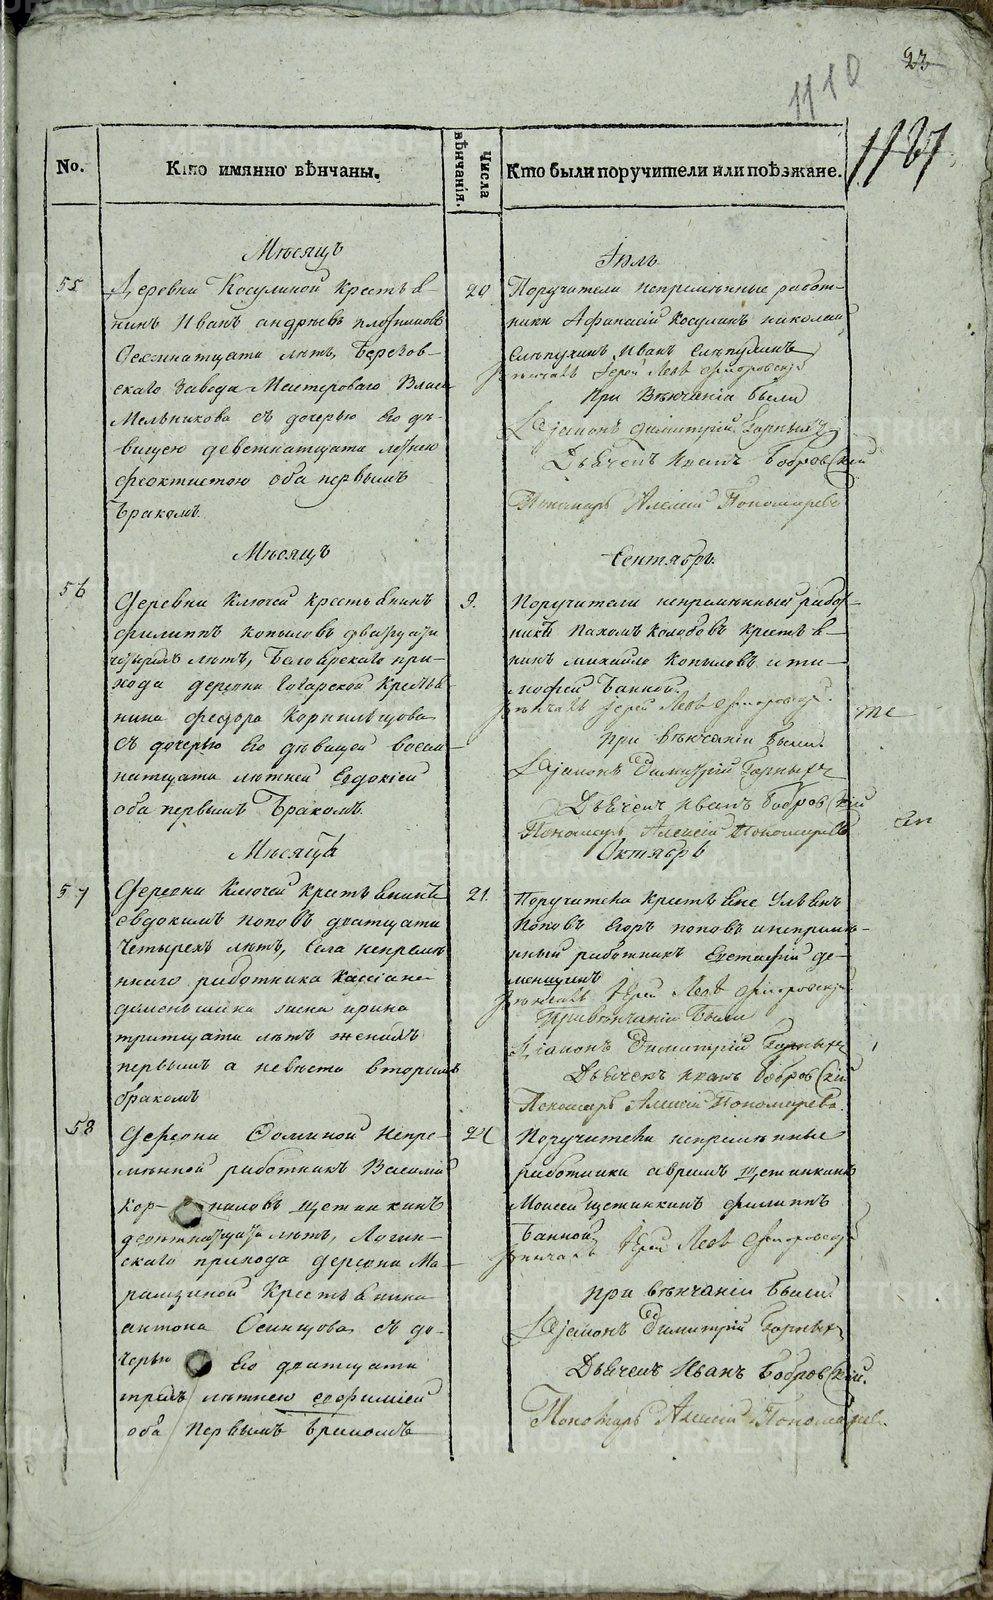 23
1110
1127
No.
Кто имянно вѣнчаны.
Числа вѣнчанія.
Кто были поручители или поѣзжане.
Мѣсяцъ
Іюль
55
Деревни Косулиной Крестья-
нинъ Иванъ Андрѣевъ Плотниковъ
Осемнатцати лѣтъ, Березов-
скаго завода Мастероваго
Мельникова съ дочерью Его дѣ-
вицею деветнатцати лѣтнею
Феоктистою оба первымъ
бракомъ.
20
Поручители непремѣнные работ-
ники Афанасій Косулинъ Николай
Слѣпухинъ Иванъ Слѣпухинъ
Вѣнчалъ Іерей Левъ
При Вѣнчаніи были
Діаконъ Димитрій
Дьячекъ Иванъ Бобровскій
Пономарь Алексій Пономаревъ
Мѣсяцъ
Сентябрь
56
Деревни Ключей крестьянинъ
Филиппъ Копыловъ двадцати
четырехъ лѣтъ, Белоярскаго при-
хода деревни Крестья-
нина Федора Корнильцова
съ дочерью Его дѣвицей восем-
натцати лѣтней Евдокіей
оба первымъ Бракомъ.
9.
Поручители непремѣнный работ-
никъ Пахомъ Колобовъ Крестья-
нинъ Михайло Копыловъ и Ти-
мофей Банной.
Вѣнчалъ Іерей Левъ
при вѣнчаніи были
Діаконъ Димитрій
Дьячекъ Иванъ Бобровскій
Пономарь Алексій Пономаревъ
Мѣсяцъ
Октябрь
57
Деревни Ключей Крестьянинъ
Евдокимъ Поповъ дватцати
Четырехъ лѣтъ, Села непремѣ-
ннаго работника Кассіана
жена Ирина
тритцати лѣтъ женихъ
первымъ а невѣста вторымъ
бракомъ
21.
Поручители Крестьяне
Поповъ Егоръ Поповъ и непремѣ-
нный работникъ Евстафій Де-
менщинъ
Вѣнчалъ Іерей Левъ
При вѣнчаніи были
Діаконъ Димитрій
Дьячекъ Иванъ Бобровскій
Пономарь Алексій Пономаревъ.
58
Деревни Фоминой Непре-
мѣнной работникъ Василій
Кор- ниловъ Щетинкинъ
девятнадцати лѣтъ, Логин-
скаго прихода деревни Ма-
Крестьянина
Антона Осинцова съ до-
черью Его дватцати
трехъ лѣтнею Евфиміей
оба первымъ бракомъ
24
Поручители непремѣнные
работники Аврамъ Щетинкинъ
Моисей Щетинкинъ Филиппъ
Банной
Вѣнчалъ Іерей Левъ
при вѣнчаніи были
Діаконъ Димитрій
Дьячекъ Иванъ Бобровскій.
Пономарь Алексій Пономаревъ.